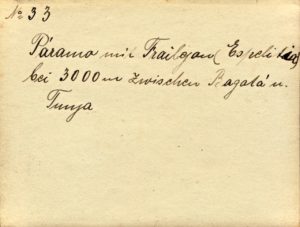 No 33
Páramo mit Frailejon (Espeletia)
bei 3000 m zwischen Bogotá u.
Tunja